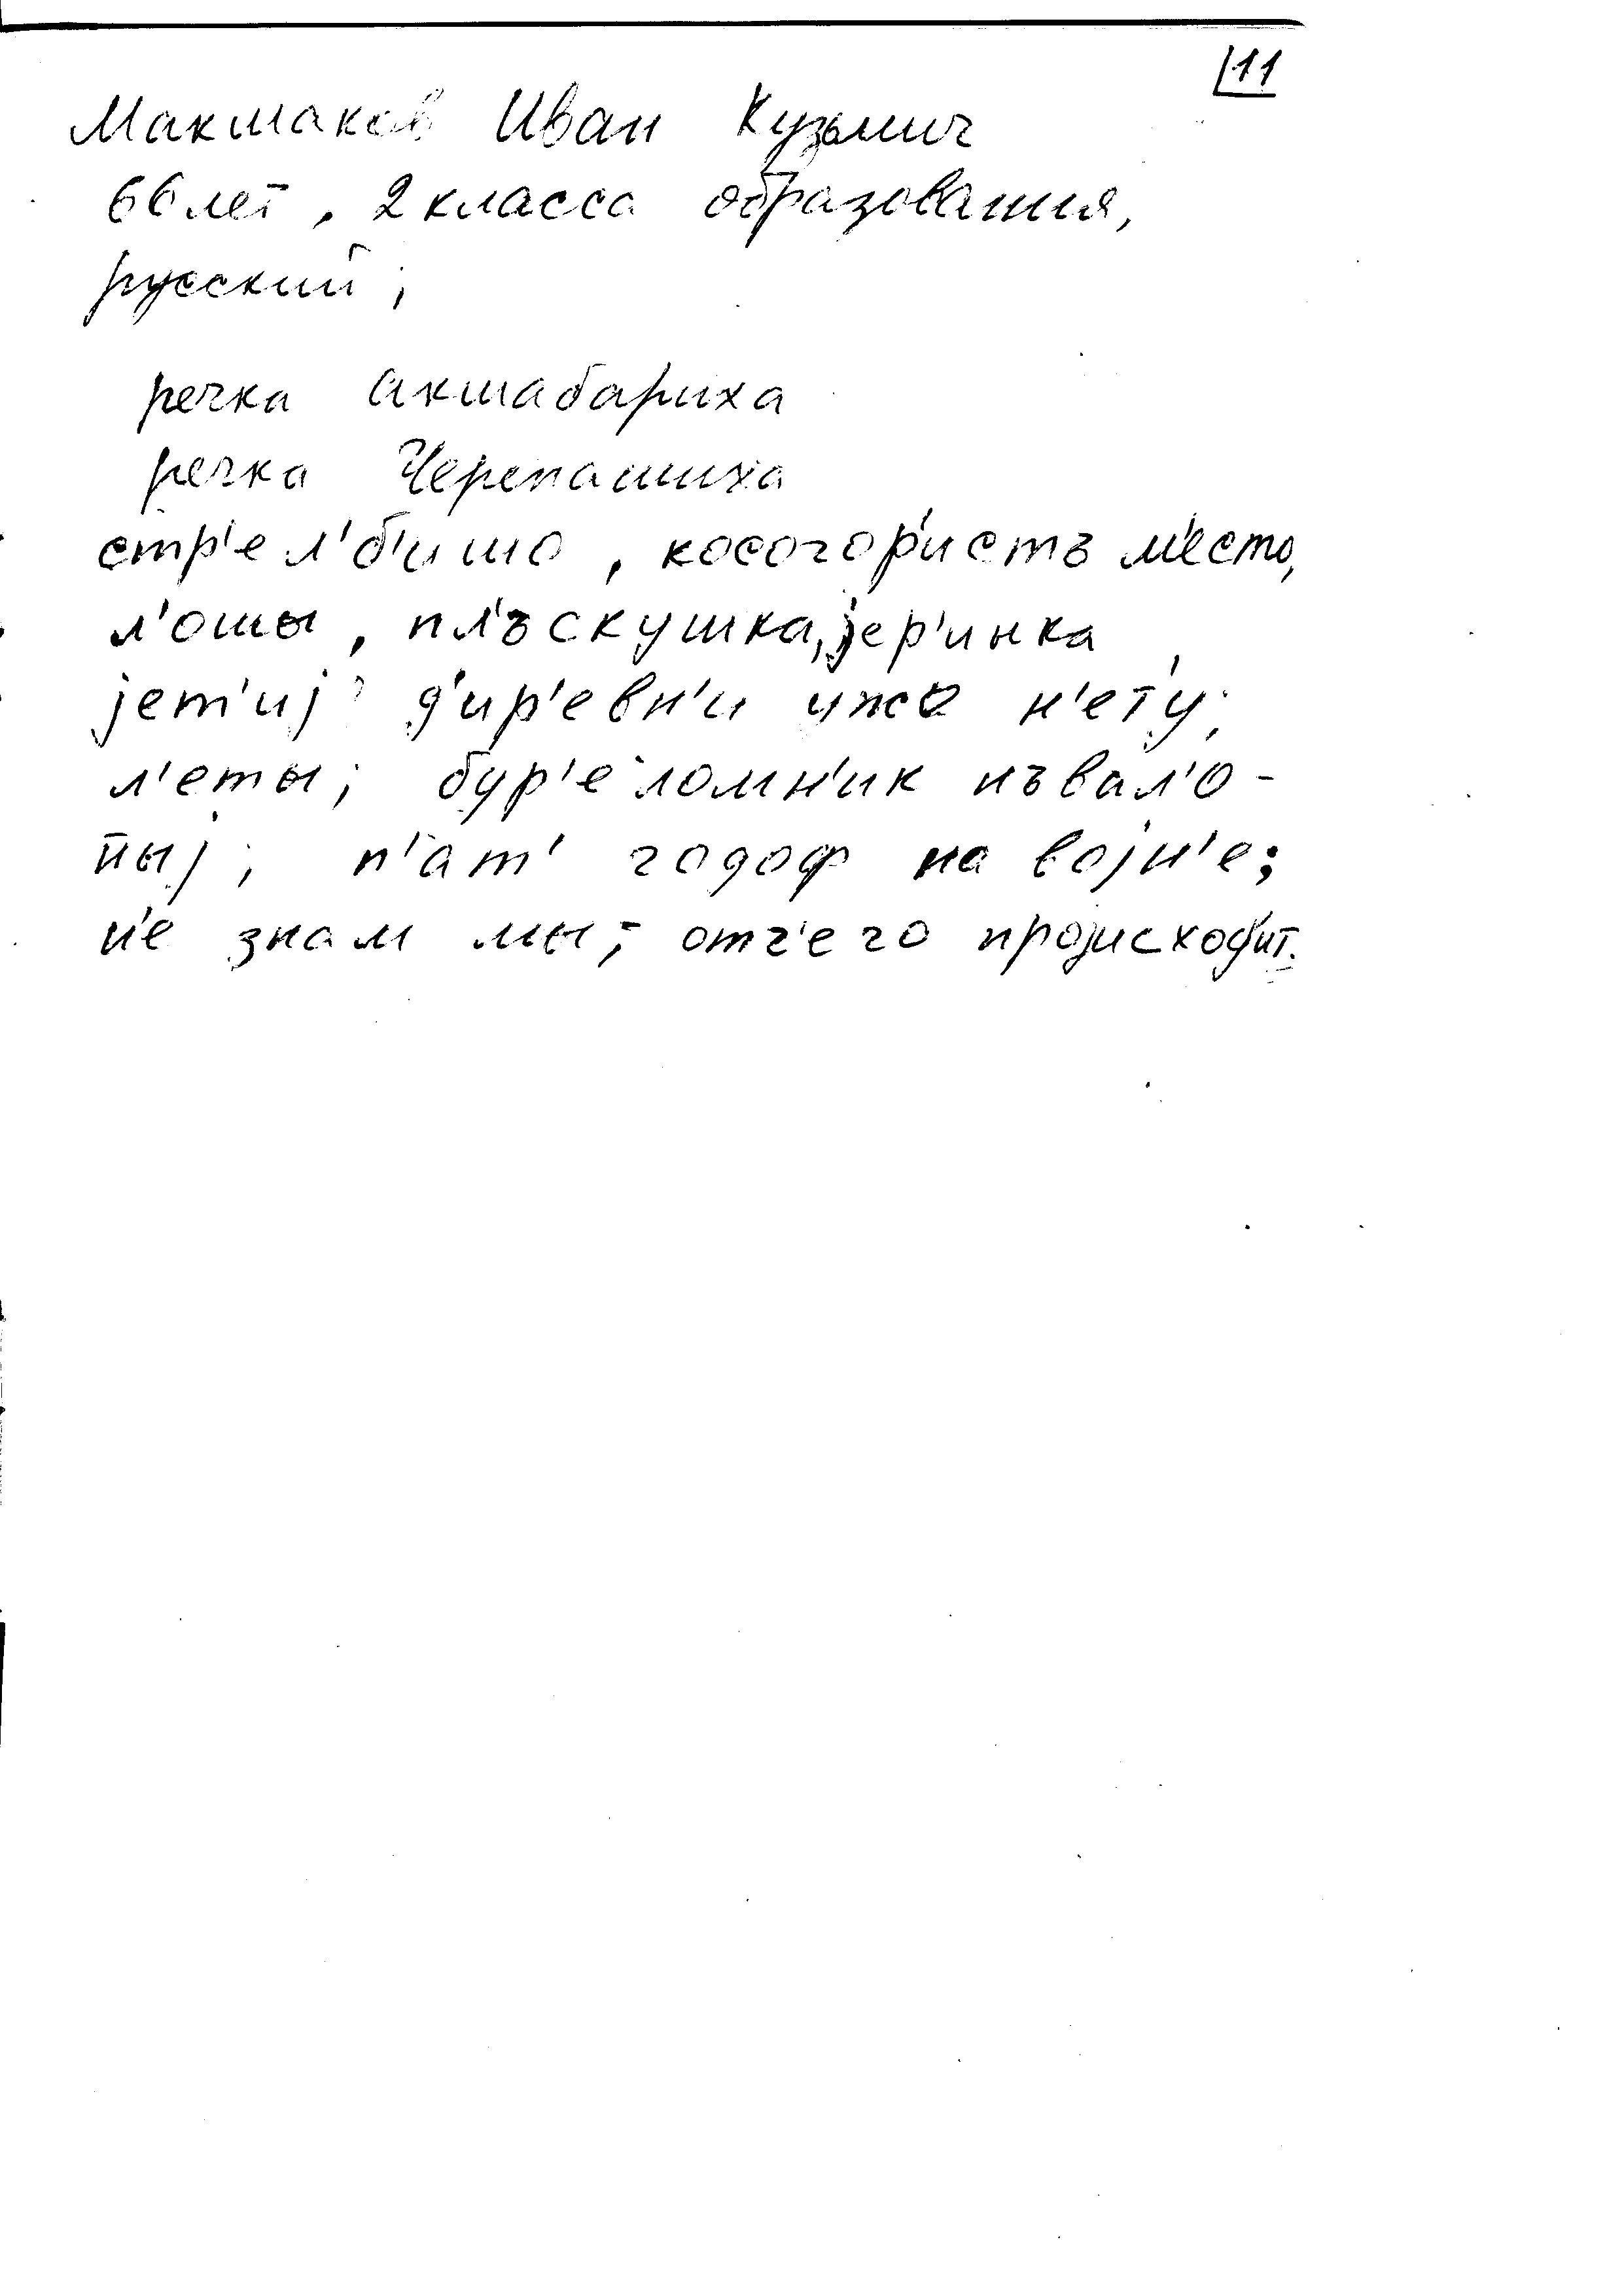 11
Макшаков Иван Кузьмич
66 лет, 2 класса образования,
русский;
речка Акшабариха
речка Черепашиха
стр'ел'б'ишо, косогор'истъ м'есто,
л'ошы, пл'ъскушка, јер'инка
јет'иј д'ир'евн'и ужо н'ету;
л'еты; бур'еломн'ик пъвал'о-
ныј; п'ат' годоф на војн'е;
н'е знам мы, отч'его происход'ит.